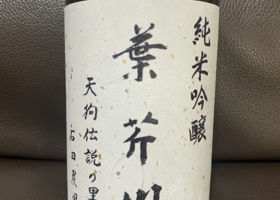 純米吟醸
葉芥
天狗伝説の里
石田